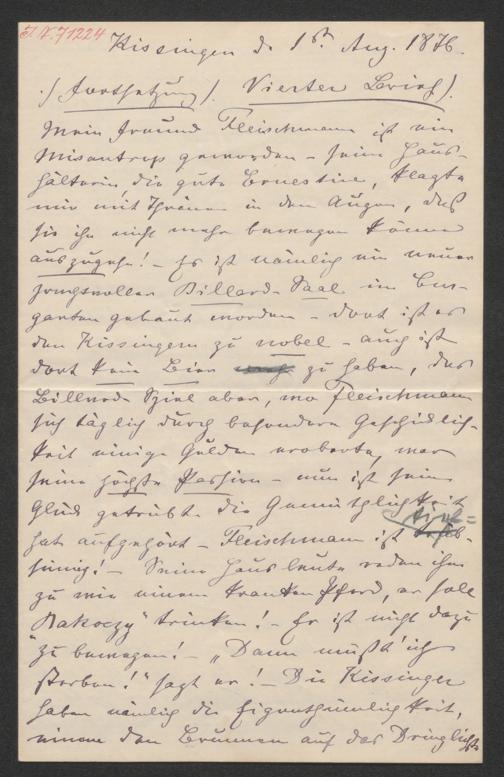 I.N. 71224
Kissingen d. 1st. Aug. 1876.
./ Fortsetzung). Vierter Brief).
Mein Freund Fleischmann ist ein
Misantrop geworden – seine Haus-
hälterin, die gute Ernestine, klagte
mir mit Thränen in den Augen, daß
sie ihn nicht mehr bewegen könne
auszugehn! – Es ist nämlich ein neuer
prachtvoller Billard-Saal im Cur-
garten gebaut worden – dort ist es
den Kissingern zu nobel – auch ist
dort kein Bier zu haben, das
Billard Spiel aber, wo Fleischmann
sich täglich durch besondere Geschicklich-
keit einige Gulden eroberte, war
seine höchste Passion – nun ist sein
Glück getrübt die Gemüthlichkeit
hat aufgehört – Fleischmann ist tief-
sinnig! – Seine Hausleute reden ihm
zu wie einem kranken Pferd, er soll
"Rakoczy" trinken! – Er ist nicht dazu
zu bewegen! – "Dann müßt' ich
sterben!" sagt er! – Die Kissinger
haben nämlich die Eigenthümlichkeit,
einem den Brunnen auf das Dringlichste